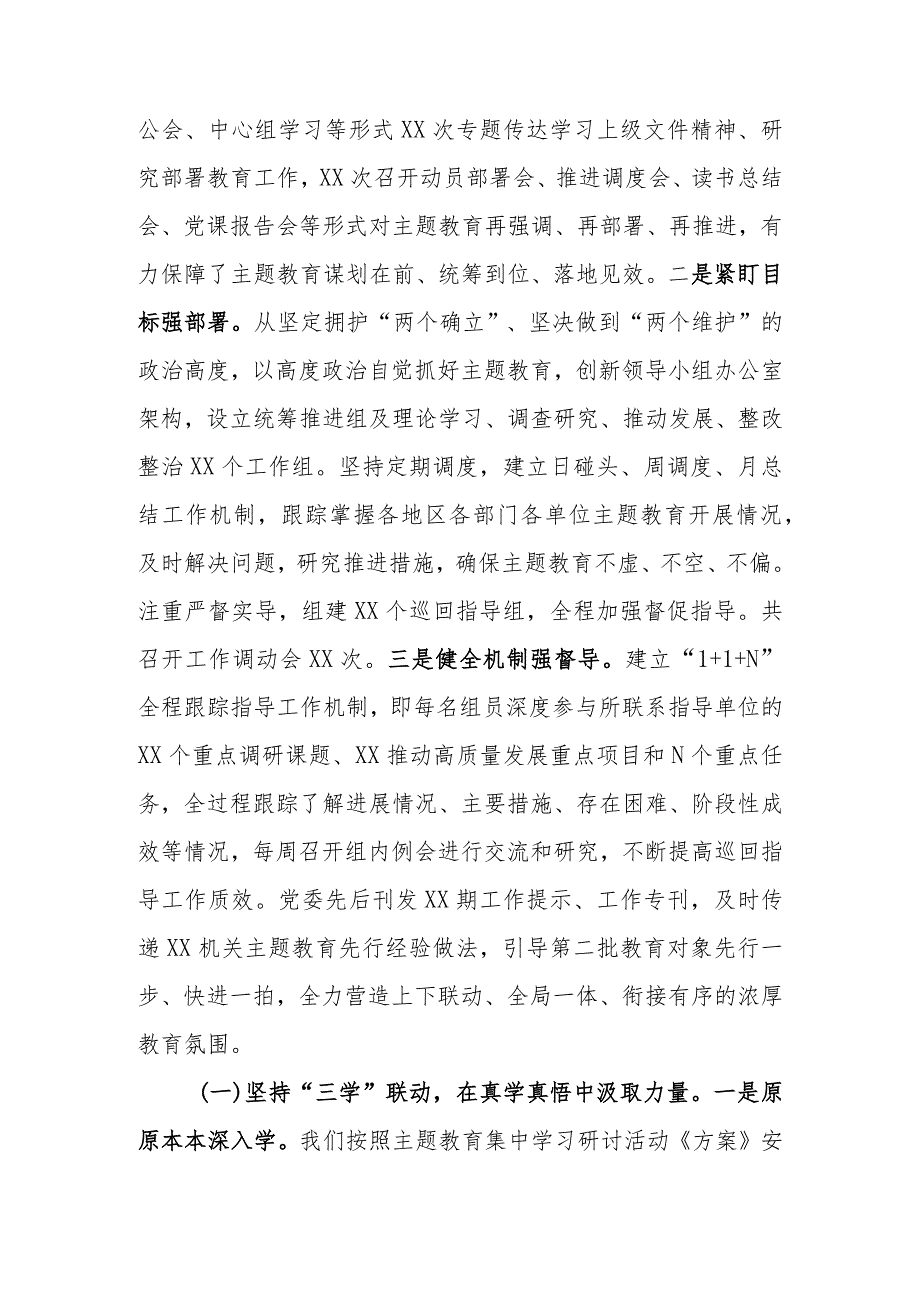 公会、中心组学习等形式 XX 次专题传达学习上级文件精神、研
究部署教育工作，XX 次召开动员部署会、推进调度会、读书总结
会、党课报告会等形式对主题教育再强调、再部署、再推进，有
力保障了主题教育谋划在前、统筹到位、落地见效。二是紧盯目
标强部署。从坚定拥护“两个确立”、坚决做到“两个维护”的
政治高度，以高度政治自觉抓好主题教育，创新领导小组办公室
架构，设立统筹推进组及理论学习、调查研究、推动发展、整改
整治 XX 个工作组。坚持定期调度，建立日碰头、周调度、月总
结工作机制，跟踪掌握各地区各部门各单位主题教育开展情况，
及时解决问题，研究推进措施，确保主题教育不虚、不空、不偏。
注重严督实导，组建 XX 个巡回指导组，全程加强督促指导。共
召开工作调动会 XX 次。三是健全机制强督导。建立“1+1+N”
全程跟踪指导工作机制，即每名组员深度参与所联系指导单位的
XX 个重点调研课题、XX 推动高质量发展重点项目和 N 个重点任
务，全过程跟踪了解进展情况、主要措施、存在困难、阶段性成
效等情况，每周召开组内例会进行交流和研究，不断提高巡回指
导工作质效。党委先后刊发 XX 期工作提示、工作专刊，及时传
递 XX 机关主题教育先行经验做法，引导第二批教育对象先行一
步、快进一拍，全力营造上下联动、全局一体、衔接有序的浓厚
教育氛围。
(一)坚持“三学”联动，在真学真悟中汲取力量。一是原
原本本深入学。我们按照主题教育集中学习研讨活动《方案》安